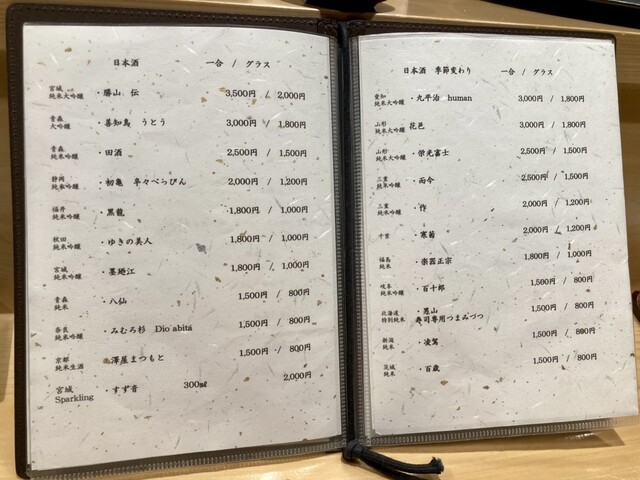 日本酒 一合 / グラス
宮城
純米大吟醸 ・勝山 伝 3,500円 / 2,000円
青森
大吟醸 ・善知鳥 うとう 3,000円 / 1,800円
青森
純米吟醸 ・田酒 2,500円 / 1,500円
静岡
純米吟醸 ・初亀 卒々べっぴん 2,000円 / 1,200円
福井
純米吟醸 ・黒龍 1,800円 / 1,000円
秋田
純米吟醸 ・ゆきの美人 1,800円 / 1,000円
宮城
純米吟醸 ・墨廼江 1,800円 / 1,000円
青森
純米 ・八仙 1,500円 / 800円
奈良
純米吟醸 ・みむろ杉 Dio abita 1,500円 / 800円
京都
純米生酒 ・澤屋まつもと 1,500円 / 800円
宮城
Sparkling ・すず音 300㎖ 2,000円
日本酒 季節変わり 一合 / グラス
愛知
純米大吟醸 ・九平治 human 3,000円 / 1,800円
山形
純米大吟醸 花邑 3,000円 / 1,800円
山形
純米大吟醸 ・栄光富士 2,500円 / 1,500円
三重
純米吟醸 ・而今 2,500円 / 1,500円
三重
純米吟醸 ・作 2,000円 / 1,200円
千葉 ・寒菊 2,000円 / 1,200円
福島
純米 ・楽器正宗 1,800円 / 1,000円
岐阜
純米吟醸 ・百十郎 1,500円 / 800円
北海道
特別純米 ・恵山
寿司専用つまみづつ 1,500円 / 800円
新潟
純米 ・凌駕 1,500円 / 800円
茨城
純米 ・百歳 1,500円 / 800円